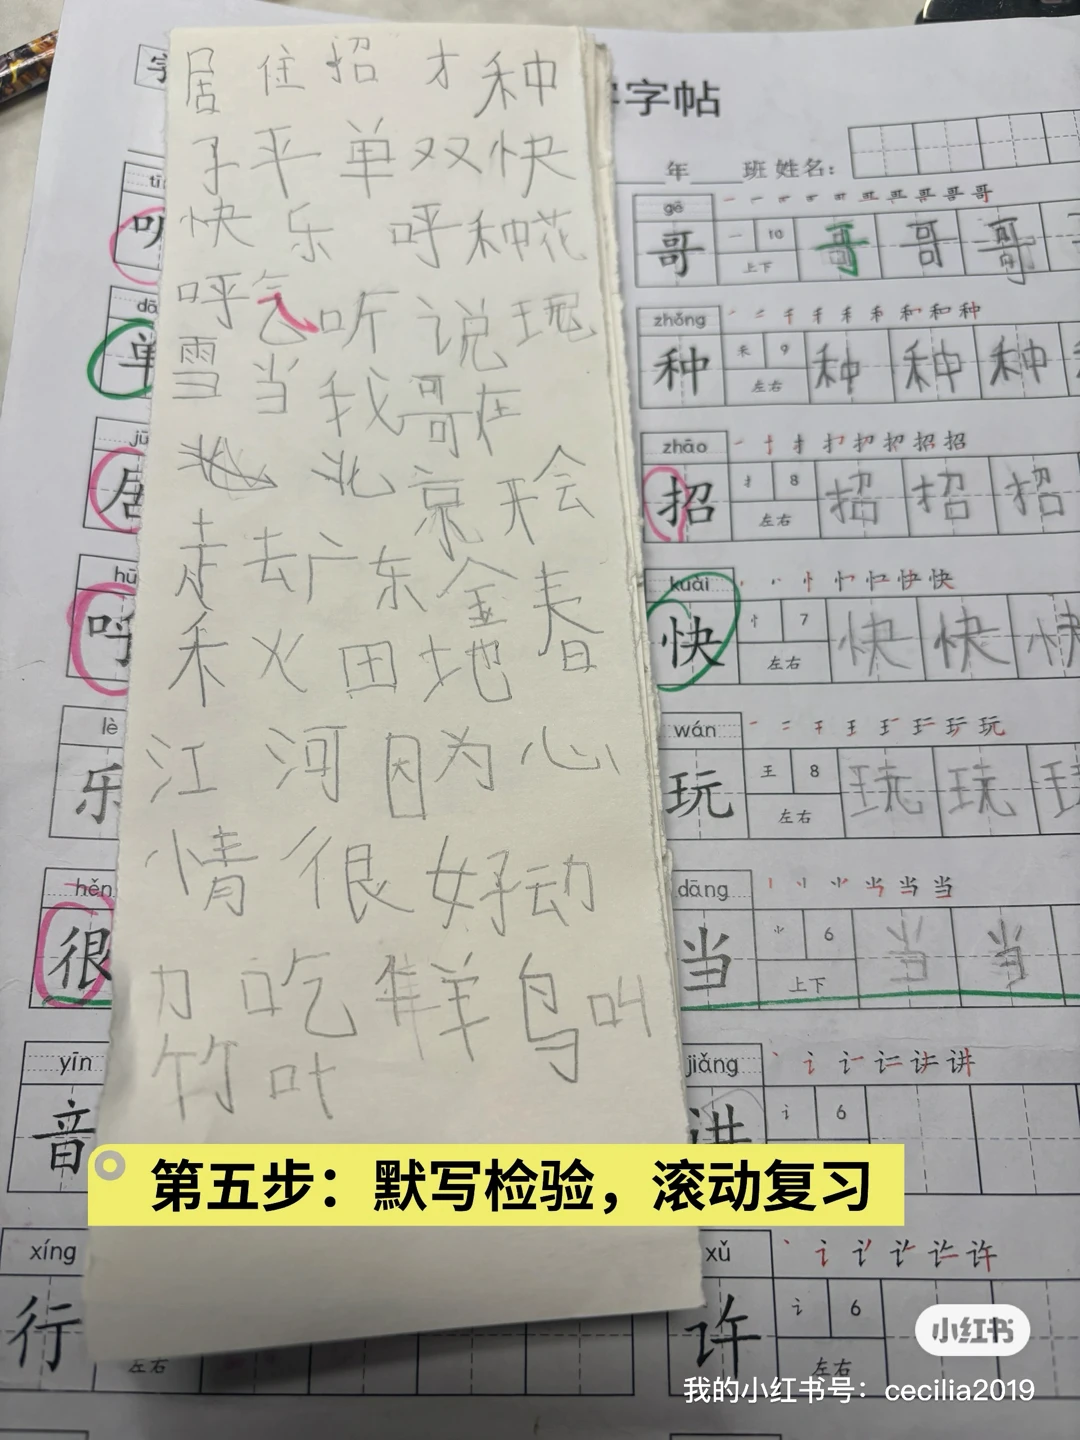 字
字字帖
年 班 姓名：
居 住 招 才 种
子 平 单 双 快
快 乐 呼 种 花
呼 气 听 说 现
雪 当 我 哥 在
北 京 天 会
走 去 广 东 金 春
禾 火 田 地
江 河 因 为 心
情 很 好 动
力 吃 鲜 鸟 叫
竹 叶
听
单
居
hū
呼
lè
乐
hěn
很
yīn
音
xíng
行
左右
gē
哥 一 10 哥 哥 哥
上下
zhǒng
种 禾 9 种 种 种
左右
zhāo
招 扌 8 招 招 招
左右
kuài
快 忄 7 快 快 快
左右
wán
玩 王 8 玩 玩
左右
dāng
当 ⺌ 6 当 当
上下
jiǎng
讲 讠 6
xǔ
许 讠 6
左右
第五步：默写检验，滚动复习
小红书
我的小红书号：cecilia2019